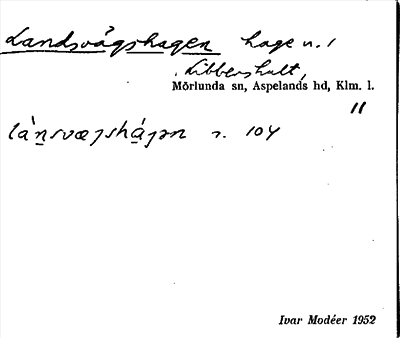 Landsvägshagen hage n. 1
Libbershult,
Mörlunda sn, Aspelands hd, Klm. l.
11
là̀nsvæɡshá̱ɡən s. 104
Ivar Modéer 1952